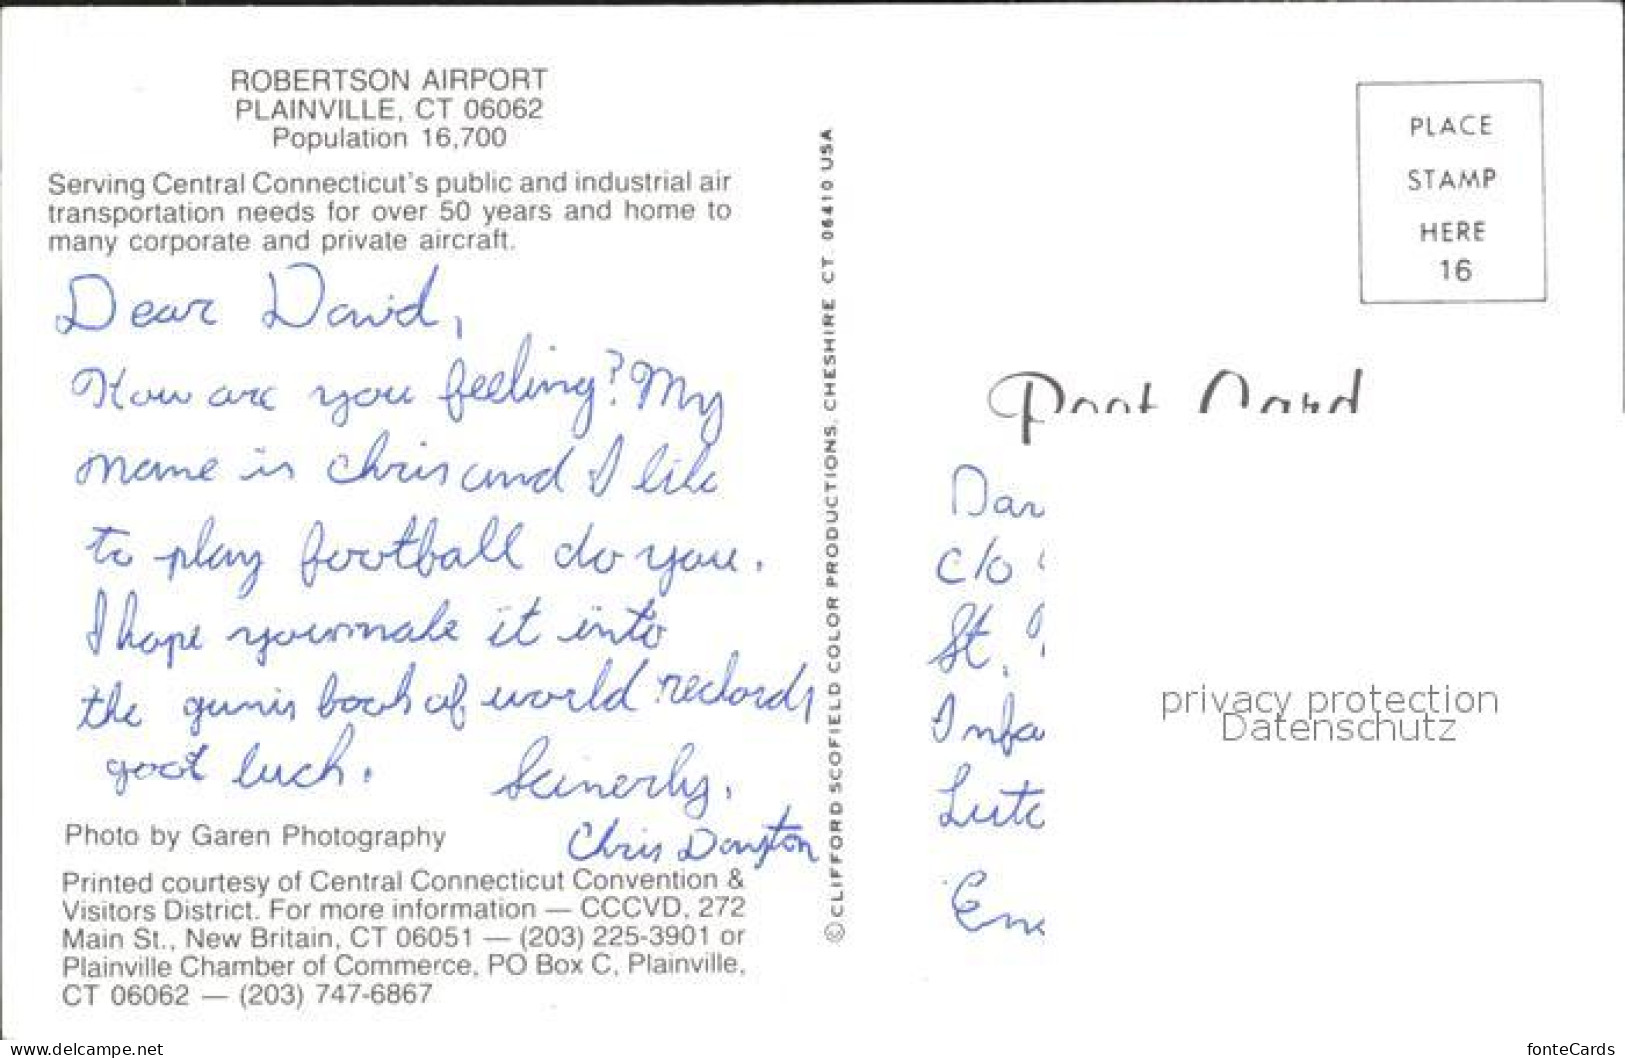 ROBERTSON AIRPORT
PLAINVILLE, CT 06062
Population 16,700
Serving Central Connecticut's public and industrial air
transportation needs for over 50 years and home to
many corporate and private aircraft.
Dear David,
How are you feeling? My
name is Chris and I like
to play football do you.
I hope you make it into
the gunis book of world reclords
goot luck.
Scinerly,
Chris
Photo by Garen Photography
Printed courtesy of Central Connecticut Convention &
Visitors District. For more information — CCCVD, 272
Main St., New Britain, CT 06051 — (203) 225-3901 or
Plainville Chamber of Commerce, PO Box C, Plainville,
CT 06062 — (203) 747-6867
© CLIFFORD SCOFIELD COLOR PRODUCTIONS, CHESHIRE CT. 06410 USA
PLACE
STAMP
HERE
16
Post Card
c/o
St.
privacy protection
Datenschutz
delcampe.net
fonteCards